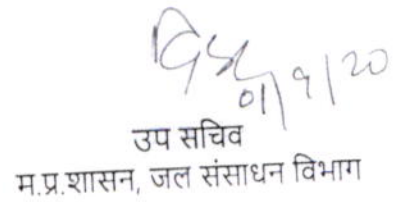 01/9/20
उप सचिव
म.प्र.शासन, जल संसाधन विभाग